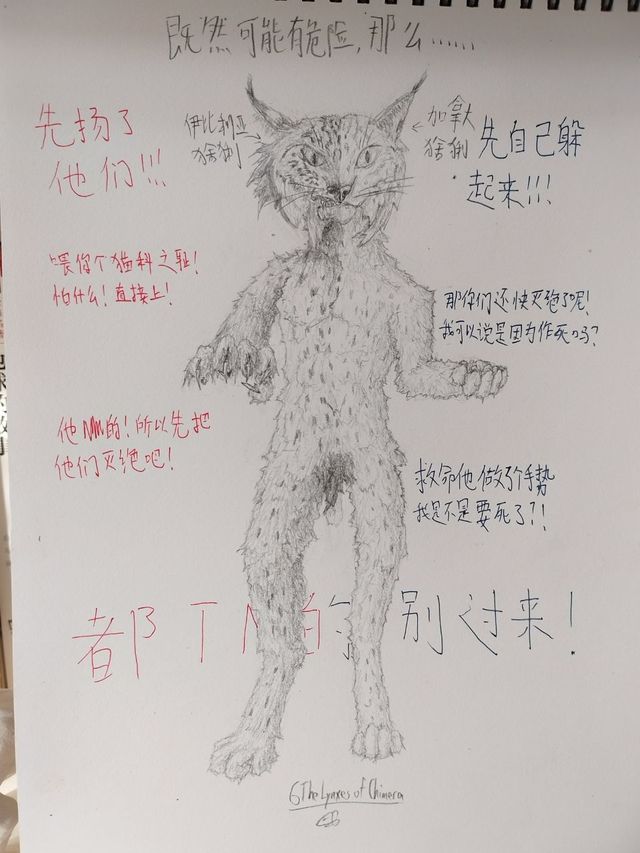 既然可能有危险,那么……
先扬了
他们!!!
伊比利亚
猞猁
加拿大
猞猁
先自己躲
起来!!!
喂你个猫科之耻!
怕什么!直接上!
那你们还快灭绝了呢!
我可以说是因为作死吗?
他NM的!所以先把
他们灭绝吧!
救命他做了个手势
我是不是要死了?!
都TM给别过来!
6 The Lynxes of Chimera